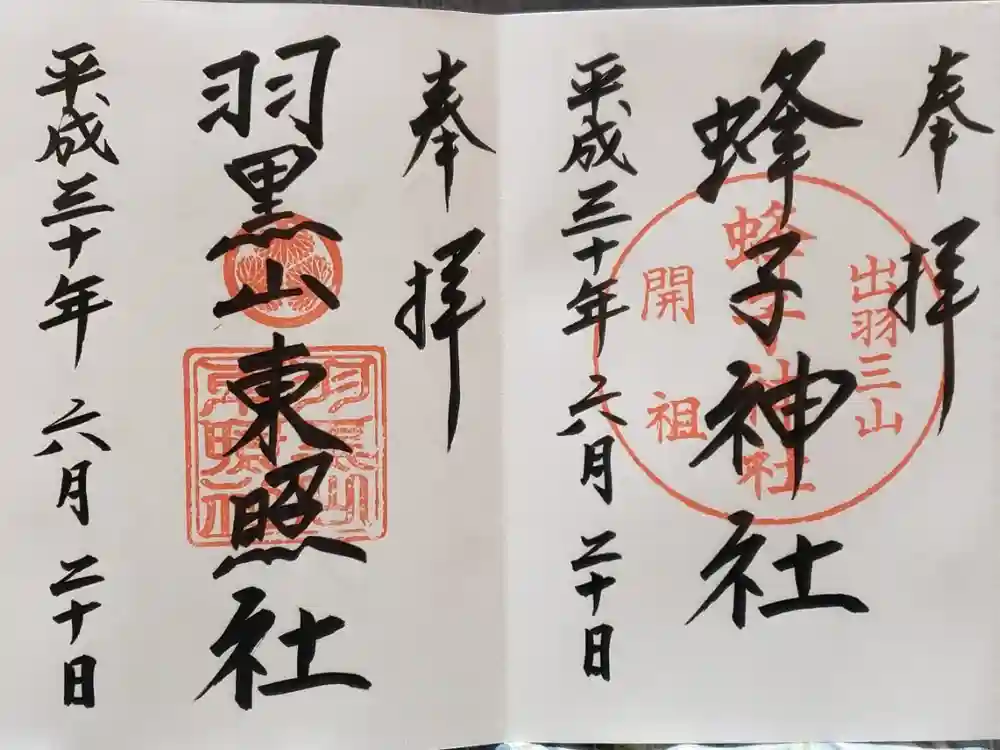 奉拝
蜂子神社
平成三十年六月二十日
出羽三山
蜂子神社
開祖
奉拝
羽黒山東照社
平成三十年六月二十日
羽黒山
東照社